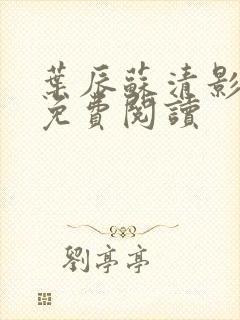 葉辰蘇清影
免費閱讀
劉亭亭